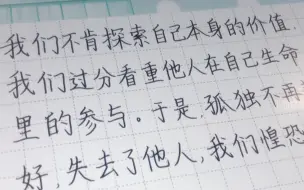 我们不肯探索自己本身的价值,
我们过分看重他人在自己生命
里的参与。于是,孤独不再
好,失去了他人,我们惶恐